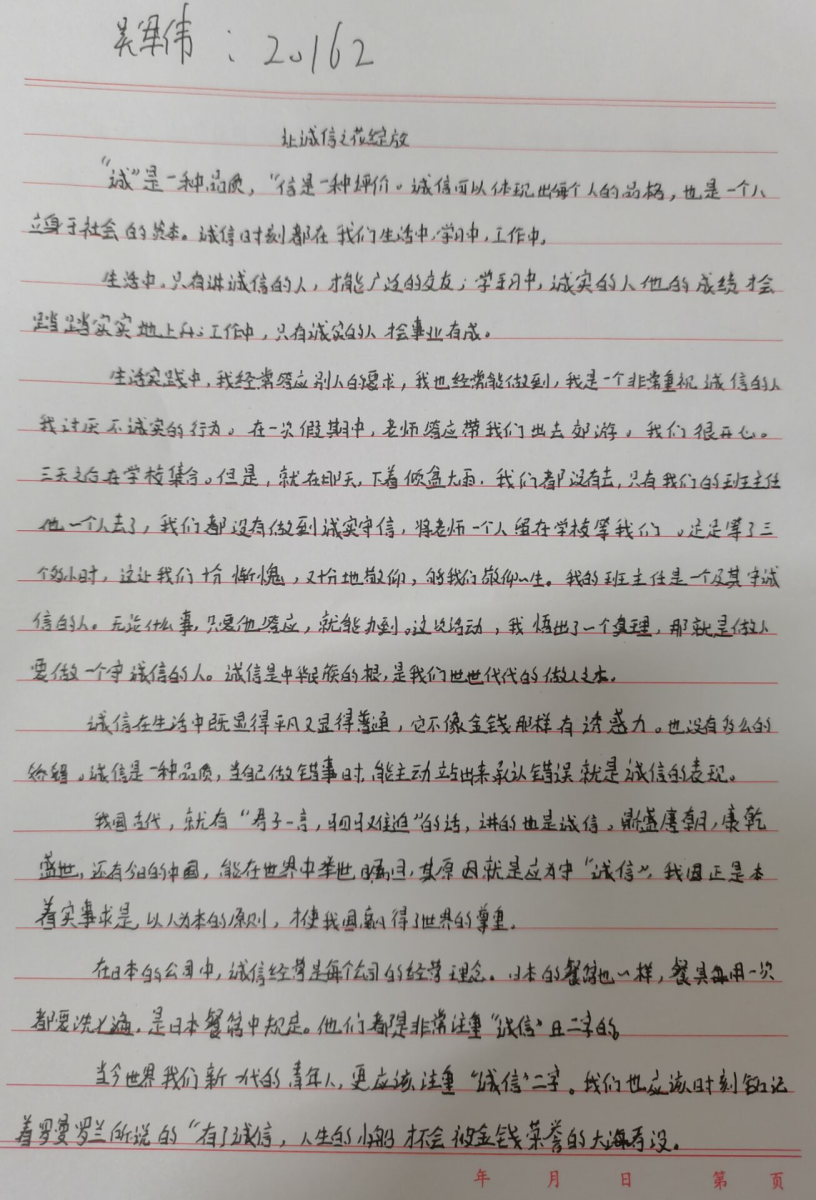 吴梁伟：20162
让诚信之花绽放
“诚”是一种品质，“信是一种评价。诚信可以体现出每个人的品格，也是一个人
立身于社会的资本。诚信时刻都在我们生活中，学习中，工作中。
生活中，只有讲诚信的人，才能广泛的交友；学习中，诚实的人他的成绩才会
踏踏实实地上升；工作中，只有诚实的人才会事业有成。
生活实践中，我经常答应别人的要求，我也经常能做到，我是一个非常重视诚信的人
我讨厌不诚实的行为。在一次假期中，老师答应带我们出去郊游。我们很开心。
三天之后在学校集合。但是，就在那天，下着倾盆大雨。我们都没有去，只有我们的班主任
他一个人去了，我们都没有做到诚实守信，将老师一个人留在学校等我们。足足等了三
个多小时，这让我们十分惭愧，又十分地敬仰，够我们敬仰一生。我的班主任是一个及其守诚
信的人。无论什么事，只要他答应，就能办到。这次活动，我悟出了一个真理，那就是做人
要做一个守诚信的人。诚信是中华民族的根，是我们世世代代的做人之本。
诚信在生活中既显得平凡又显得普通，它不像金钱那样有诱惑力。也没有多么的
娇艳。诚信是一种品质，当自己做错事时，能主动站出来承认错误就是诚信的表现。
我国古代，就有“君子一言，驷马难追”的话，讲的也是诚信。鼎盛唐朝，康乾
盛世，还有今日的中国，能在世界中举世瞩目，其原因就是应为守“诚信”，我国正是本
着实事求是，以人为本的原则，才使我国赢得了世界的尊重。
在日本的公司中，诚信经营是每个公司的经营理念。日本的餐馆也一样，餐具每用一次
都要洗七遍，是日本餐馆中规定。他们都是非常注重“诚信”二字的。
当今世界我们新一代的青年人，更应该注重“诚信”二字。我们也应该时刻铭记
着罗曼罗兰所说的“有了诚信，人生的小船才不会被金钱荣誉的大海吞没。
年 月 日 第 页